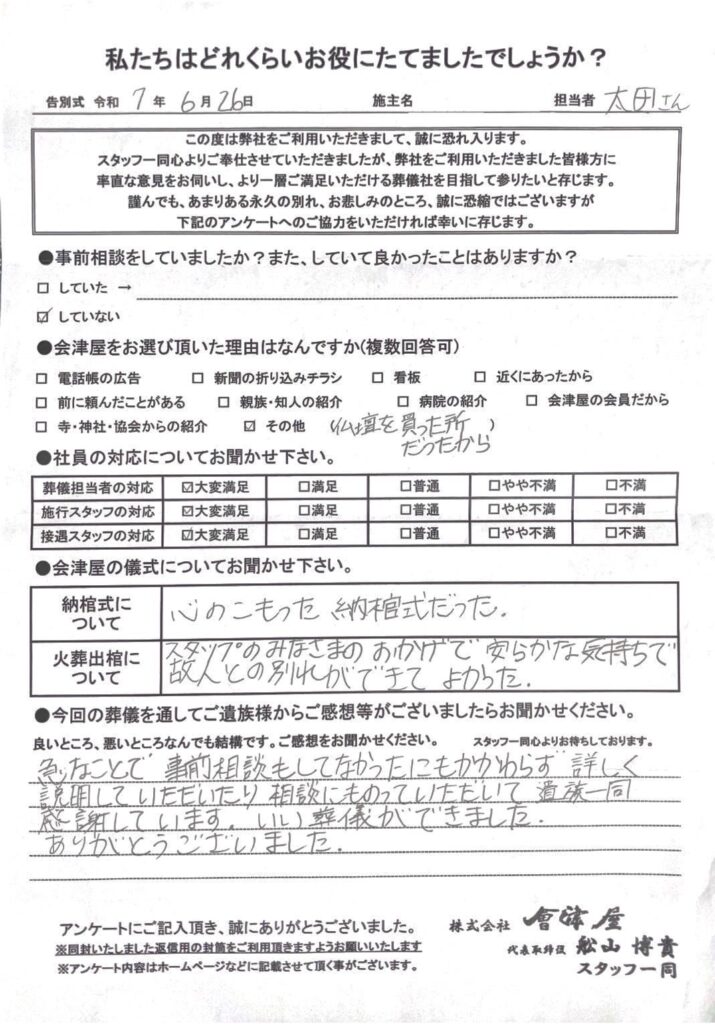 私たちはどれくらいお役にたてましたでしょうか？
告別式 令和 7 年 6 月 26 日 施主名 担当者 太田さん
この度は弊社をご利用いただきまして、誠に恐れ入ります。
スタッフ一同心よりご奉仕させていただきましたが、弊社をご利用いただきました皆様方に
率直な意見をお伺いし、より一層ご満足いただける葬儀社を目指して参りたいと存じます。
謹んでも、あまりある永久の別れ、お悲しみのところ、誠に恐縮ではございますが
下記のアンケートへのご協力をいただければ幸いに存じます。
●事前相談をしていましたか？また、していて良かったことはありますか？
□ していた →
☑ していない
●会津屋をお選び頂いた理由はなんですか(複数回答可)
□ 電話帳の広告 □ 新聞の折り込みチラシ □ 看板 □ 近くにあったから
□ 前に頼んだことがある □ 親族・知人の紹介 □ 病院の紹介 □ 会津屋の会員だから
□ 寺・神社・協会からの紹介 ☑ その他 (仏壇を買った所
だったから)
●社員の対応についてお聞かせ下さい。
葬儀担当者の対応 ☑大変満足 □満足 □普通 □やや不満 □不満
施行スタッフの対応 ☑大変満足 □満足 □普通 □やや不満 □不満
接遇スタッフの対応 ☑大変満足 □満足 □普通 □やや不満 □不満
●会津屋の儀式についてお聞かせ下さい。
納棺式に
ついて
心のこもった 納棺式だった.
火葬出棺に
ついて
スタップのみなさまの おかげで 安らかな気持ちで
故人との別れができて よかった.
●今回の葬儀を通してご遺族様からご感想等がございましたらお聞かせください。
良いところ、悪いところなんでも結構です。ご感想をお聞かせください。 スタッフ一同心よりお待ちしております。
急なことで 事前相談もしてなかったにもかかわらず 詳しく
説明していただいたり 相談にものっていただいて 遺族一同
感謝しています. いい葬儀ができました.
ありがとうございました.
アンケートにご記入頂き、誠にありがとうございました。
※同封いたしました返信用の封筒をご利用頂きますようお願いいたします
※アンケート内容はホームページなどに記載させて頂く事がございます。
株式会社 會津屋
代表取締役 舩山 博貴
スタッフ一同